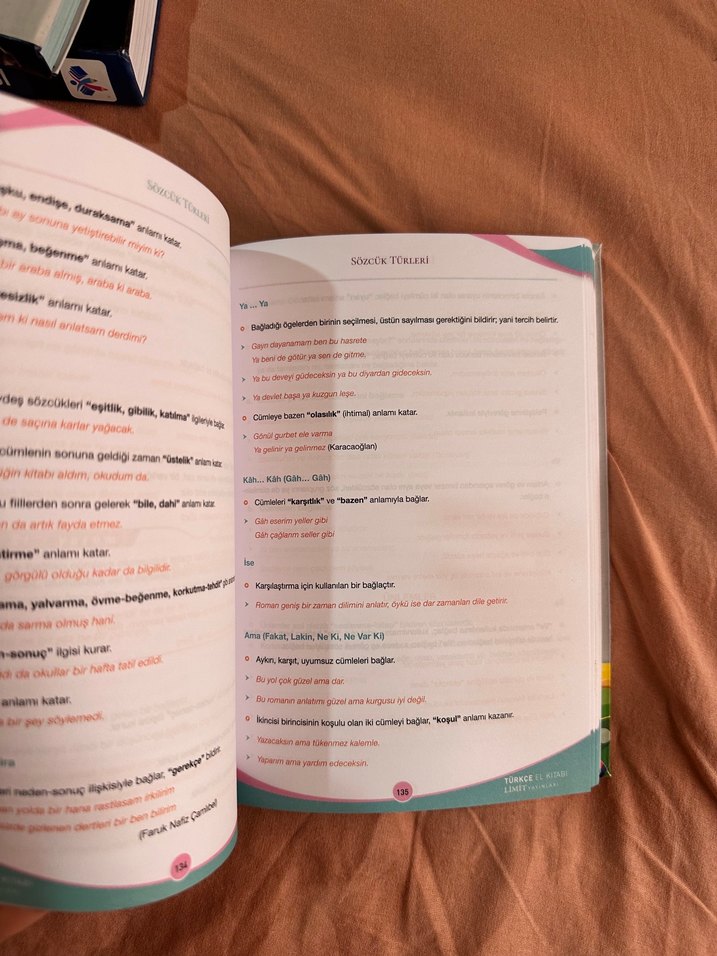 SÖZCÜK TÜRLERİ
endişe, duraksama" anlamı katar.
ay sonuna yetiştirebilir miyim ki?
beğenme" anlamı katar.
bir araba almış, araba ki araba.
anlamı katar.
ki nasıl anlatsam derdimi?
sözcükleri "eşitlik, gibilik, katılma" ilgileriyle bağlar.
de saçına karlar yağacak.
cümlenin sonuna geldiği zaman "üstelik" anlamı katar.
kitabı aldım, okudum da.
fiillerden sonra gelerek "bile, dahi" anlamı katar.
da artık fayda etmez.
anlamı katar.
görgülü olduğu kadar da bilgilidir.
yalvarma, övme-beğenme, korkutma-tehdit"
da sarma olmuş hani.
ilgisi kurar.
da okullar bir hafta tatil edildi.
anlamı katar.
bir şey söylemedi.
neden-sonuç ilişkisiyle bağlar, "gerekçe" bildirir.
yolda bir hana rastlasam irkilirim
gizlenen dertleri bir ben bilirim
(Faruk Nafiz Çamlıbel)
134
SÖZCÜK TÜRLERİ
Ya ... Ya
Bağladığı ögelerden birinin seçilmesi, üstün sayılması gerektiğini bildirir; yani tercih belirtir.
Gayrı dayanamam ben bu hasrete
Ya beni de götür ya sen de gitme.
Ya bu deveyi güdeceksin ya bu diyardan gideceksin.
Ya devlet başa ya kuzgun leşe.
Cümleye bazen "olasılık" (ihtimal) anlamı katar.
Gönül gurbet ele varma
Ya gelinir ya gelinmez (Karacaoğlan)
Kâh... Kâh (Gâh... Gâh)
Cümleleri "karşıtlık" ve "bazen" anlamıyla bağlar.
Gâh eserim yeller gibi
Gâh çağlarım seller gibi
İse
Karşılaştırma için kullanılan bir bağlaçtır.
Roman geniş bir zaman dilimini anlatır, öykü ise dar zamanları dile getirir.
Ama (Fakat, Lakin, Ne Ki, Ne Var Ki)
Aykırı, karşıt, uyumsuz cümleleri bağlar.
Bu yol çok güzel ama dar.
Bu romanın anlatımı güzel ama kurgusu iyi değil.
İkincisi birincisinin koşulu olan iki cümleyi bağlar, "koşul" anlamı kazanır.
Yazacaksın ama tükenmez kalemle.
Yaparım ama yardım edeceksin.
135
TÜRKÇE EL KİTABI
LİMİT YAYINLARI